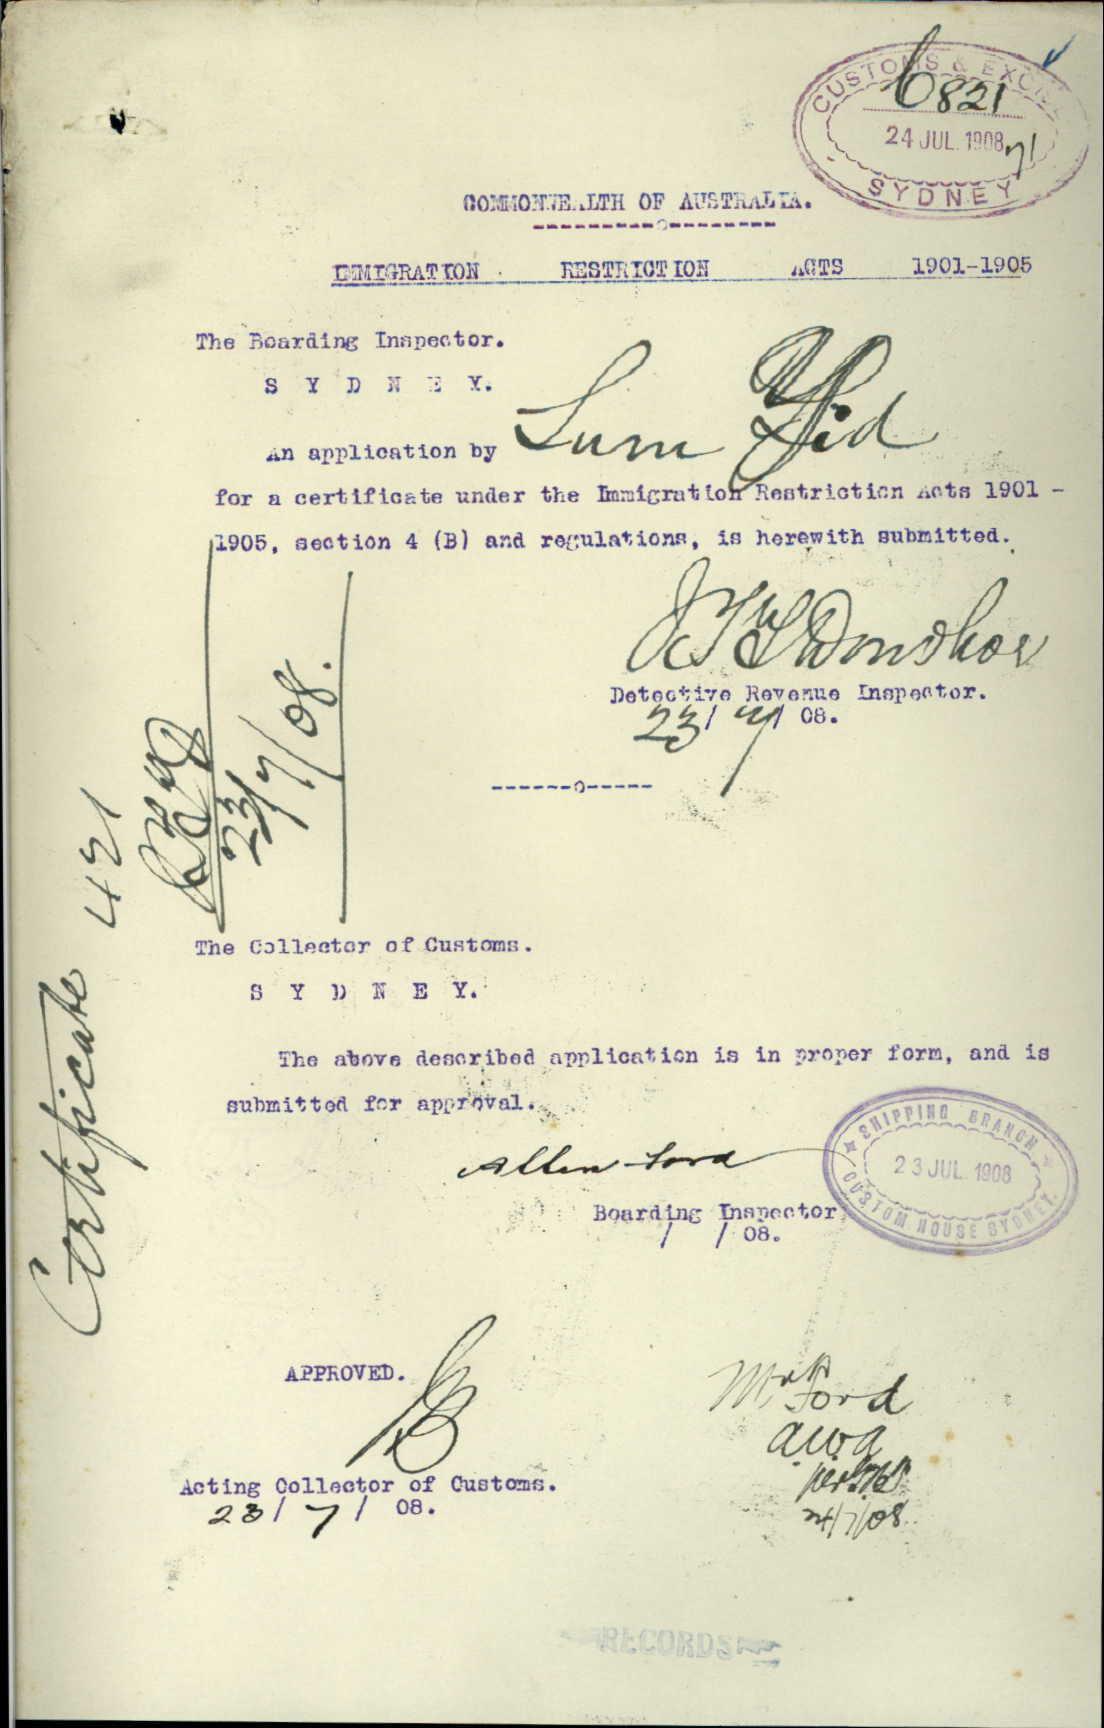 CUSTOMS & EXCISE
6821
24 JUL. 1908
SYDNEY
COMMONWEALTH OF AUSTRALIA.
IMMIGRATION RESTRICTION ACTS 1901-1905
The Boarding Inspector.
S Y D N E Y.
An application by Lum Yid
for a certificate under the Immigration Restriction Acts 1901 -
1905, section 4 (B) and regulations, is herewith submitted.
Donohoe
Detective Revenue Inspector.
23/ 7/ 08.
-------o------
23/7/08.
Certificate 421
The Collector of Customs.
S Y D N E Y.
The above described application is in proper form, and is
submitted for approval.
Allen Ford
SHIPPING BRANCH
23 JUL 1908
CUSTOM HOUSE SYDNEY.
Boarding Inspector
/ / 08.
APPROVED.
Acting Collector of Customs.
23/ 7/ 08.
Mr Ford
24/7/08
RECORDS